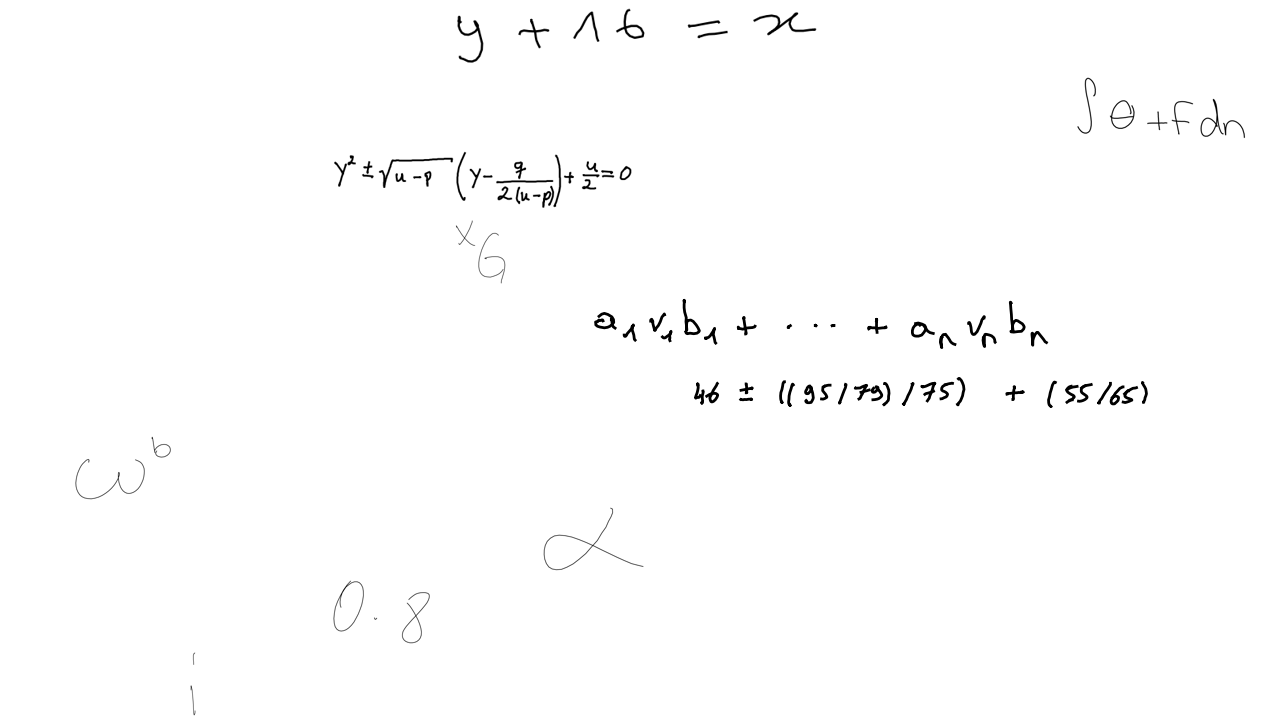 y + 16 = x
∫ θ + F dn
y² ± √(u - p) (y - q/(2(u - p))) + u/2 = 0
ˣG
a₁ v₁ b₁ + ... + aₙ vₙ bₙ
46 ± ((95/79)/75) + (55/65)
ωᵇ
α
0.8
i